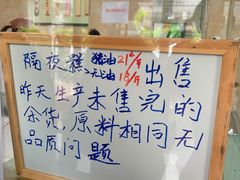 隔夜糕 猪油21元/斤 出售
无油18元/斤
昨天生产未售完的
余货,原料相同无
品质问题